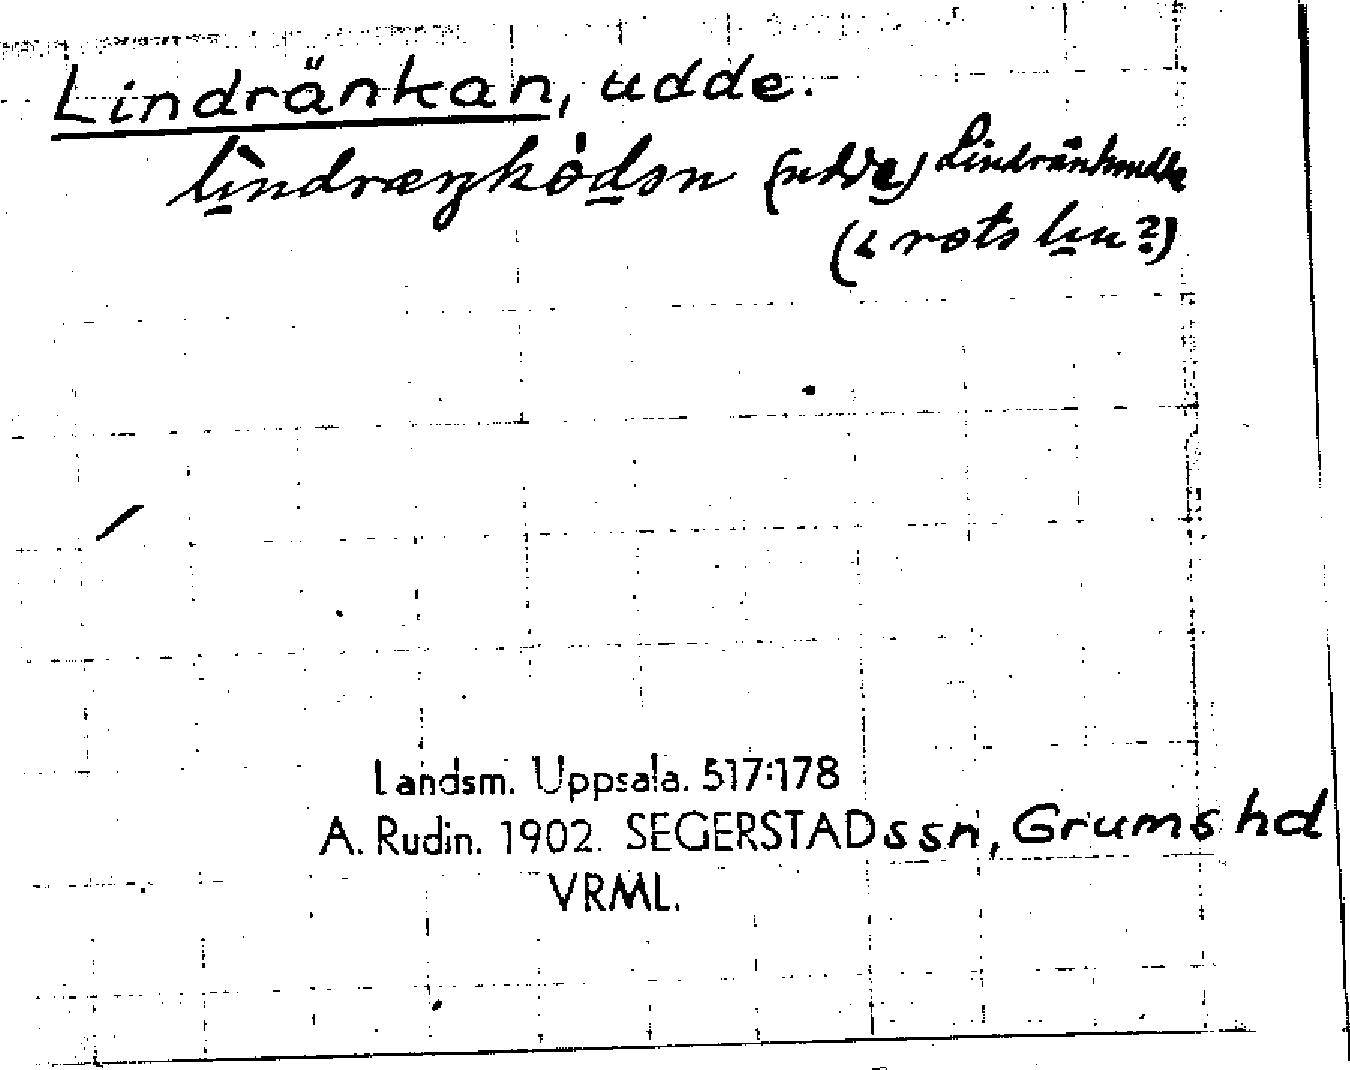 Lindränkan, udde.
(udde) Lindränkudde
(i rots
Landsm. Uppsala. 517:178
A. Rudin. 1902. SEGERSTADssn, Grums hd
VRML.